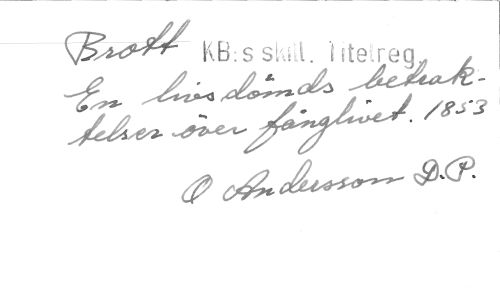 Brott KB:s skill. Titelreg.
En livsdömds betrak-
telser över fånglivet. 1853
O Andersson D.P.